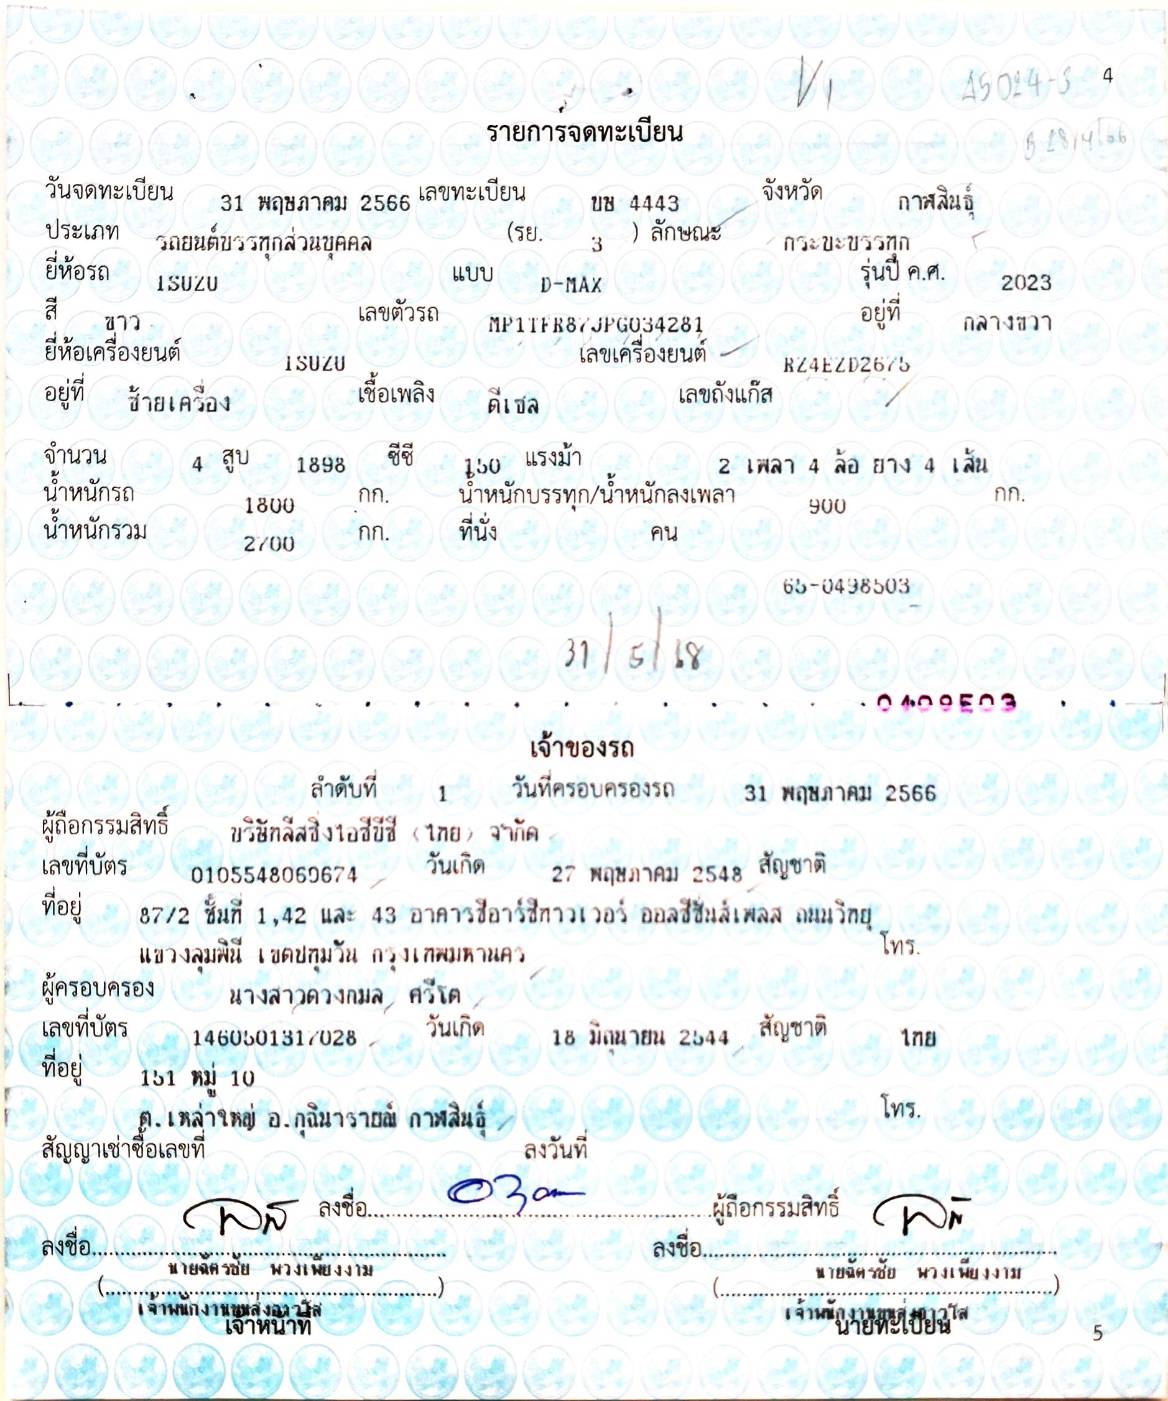 4
รายการจดทะเบียน
วันจดทะเบียน 31 พฤษภาคม 2566 เลขทะเบียน ขษ 4443 จังหวัด กาฬสินธุ์
ประเภท รถยนต์บรรทุกส่วนบุคคล (รย. 3 ) ลักษณะ กระบะบรรทุก
ยี่ห้อรถ ISUZU แบบ D-MAX รุ่นปี ค.ศ. 2023
สี ขาว เลขตัวรถ MP1TFR87JPG034281 อยู่ที่ กลางขวา
ยี่ห้อเครื่องยนต์ ISUZU เลขเครื่องยนต์ RZ4EZD2675
อยู่ที่ ซ้ายเครื่อง เชื้อเพลิง ดีเซล เลขถังแก๊ส
จำนวน 4 สูบ 1898 ซีซี 150 แรงม้า 2 เพลา 4 ล้อ ยาง 4 เส้น
น้ำหนักรถ 1800 กก. น้ำหนักบรรทุก/น้ำหนักลงเพลา 900 กก.
น้ำหนักรวม 2700 กก. ที่นั่ง คน
65-0498503
31/5/68
เจ้าของรถ
ลำดับที่ 1 วันที่ครอบครองรถ 31 พฤษภาคม 2566
ผู้ถือกรรมสิทธิ์ บริษัทลีสซิ่งไอซีบีซี (ไทย) จำกัด
เลขที่บัตร 0105548069674 วันเกิด 27 พฤษภาคม 2548 สัญชาติ
ที่อยู่ 87/2 ชั้นที่ 1,42 และ 43 อาคารซีอาร์ซีทาวเวอร์ ออลซีซั่นส์เพลส ถนนวิทยุ
แขวงลุมพินี เขตปทุมวัน กรุงเทพมหานคร โทร.
ผู้ครอบครอง นางสาวดวงกมล ศรีโต
เลขที่บัตร 1460501317028 วันเกิด 18 มิถุนายน 2544 สัญชาติ ไทย
ที่อยู่ 151 หมู่ 10
ต.เหล่าใหญ่ อ.กุฉินารายณ์ กาฬสินธุ์ โทร.
สัญญาเช่าซื้อเลขที่ ลงวันที่
ลงชื่อ ผู้ถือกรรมสิทธิ์
ลงชื่อ ลงชื่อ
(นายฉัตรชัย พวงเพียงงาม) (นายฉัตรชัย พวงเพียงงาม)
เจ้าพนักงานขนส่งอาวุโส เจ้าพนักงานขนส่งอาวุโส
เจ้าหน้าที่ นายทะเบียน
5